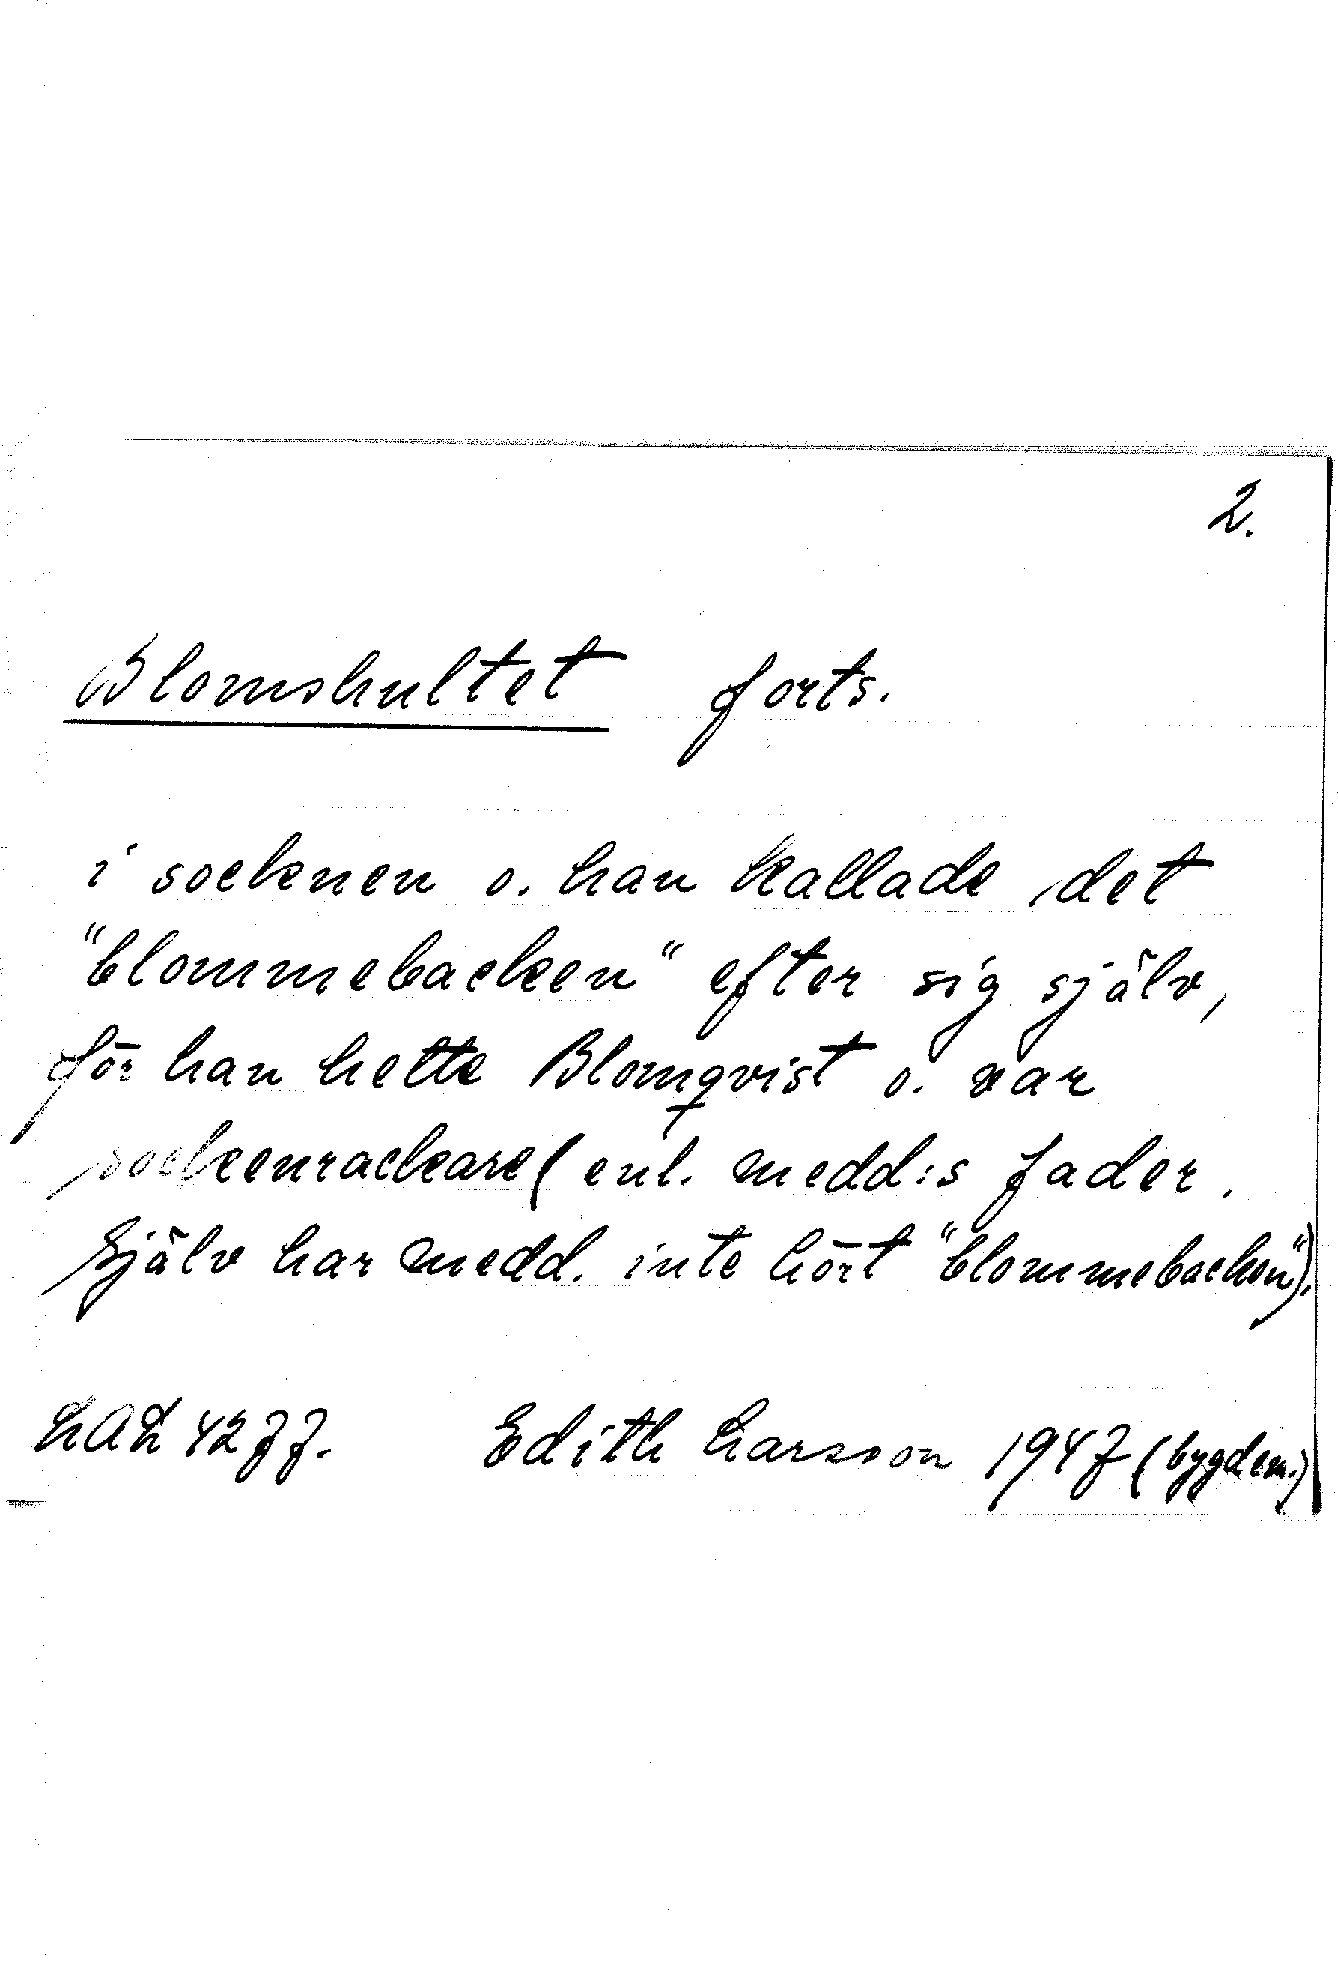 2.
Blomshultet forts.
i sockenen o. han kallade det
"blommebacken" efter sig själv,
för han hette Blomqvist o. var
sockenrackare (enl. medd:s fader.
Själv har medd. inte hört "blommebacken").
LAL 4277. Edith Larsson 1947 (bygdem.)